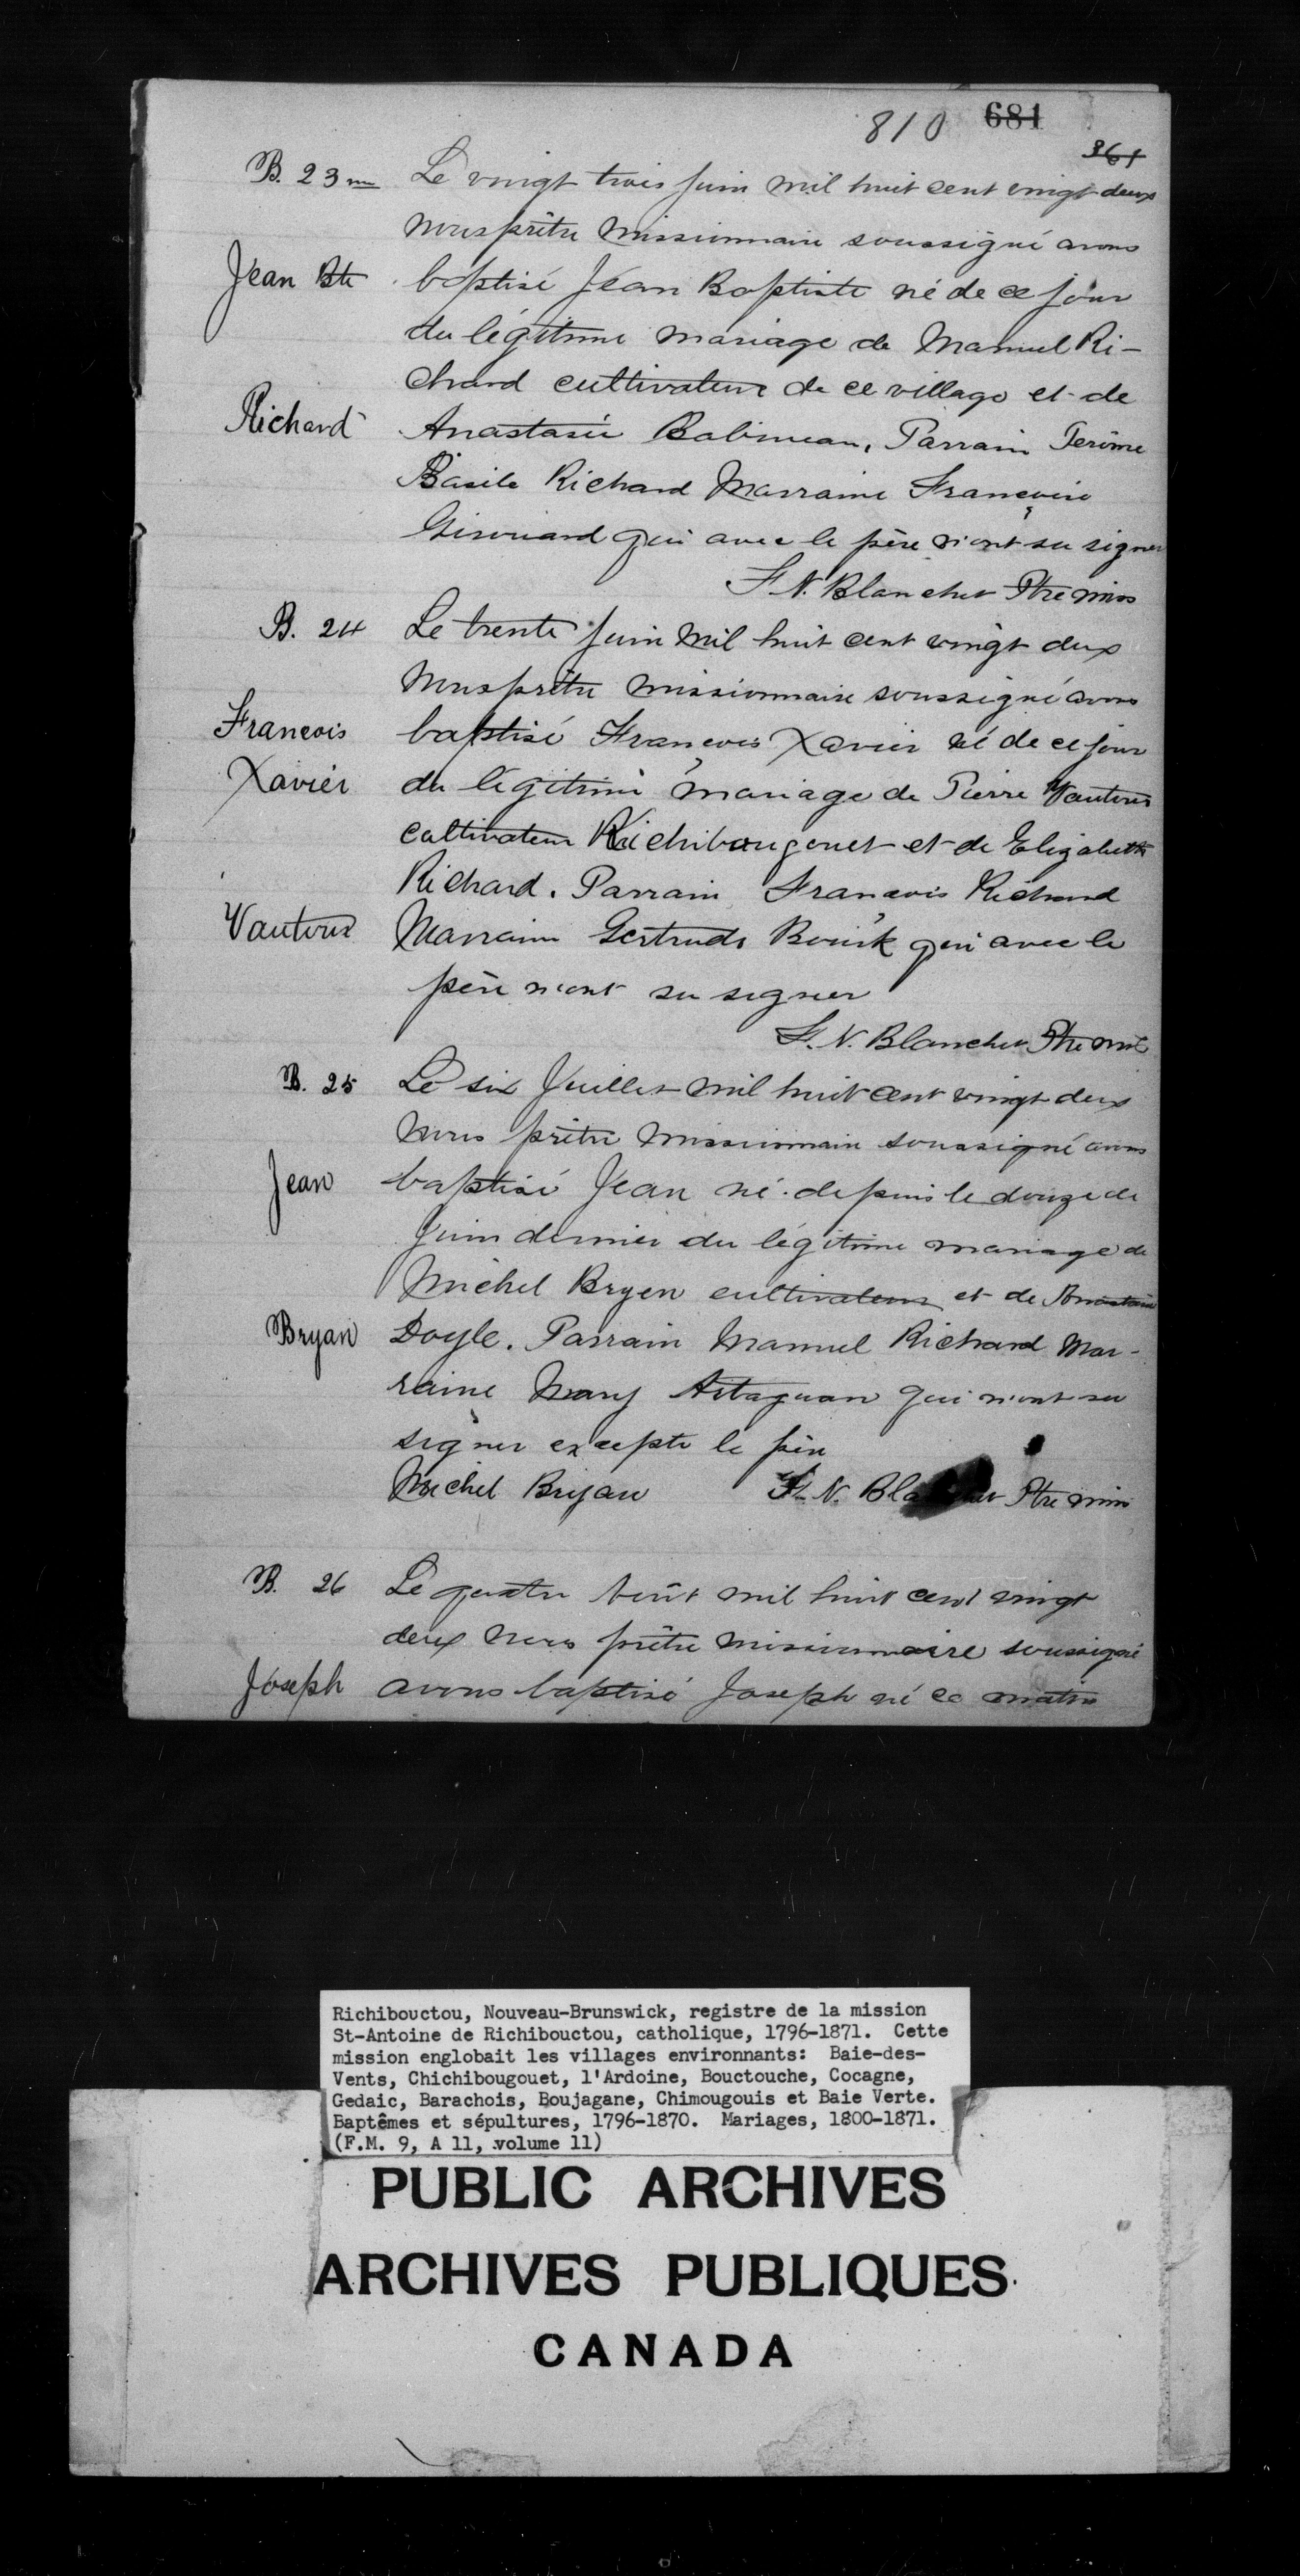 810 681
361
B. 23me Le vingt trois juin mil huit cent vingt-deux
nous prêtre missionnaire soussigné avons
Jean Bte baptisé Jean Baptiste né de ce jour
du légitime mariage de Manuel Ri-
chard cultivateur de ce village et de
Richard Anastasie Babineau, Parrain Jerôme
Basile Richard Marraine Françoise
Girouard qui avec le père n'ont su signer
F. N. Blanchet Ptre miss
B. 24 Le trente juin mil huit cent vingt deux
nous prêtre missionnaire soussigné avons
Francois baptisé François Xavier né de ce jour
Xavier du légitime mariage de Pierre Vautour
cultivateur Richibougouet et de Elizabeth
Richard. Parrain François Richard
Vautour Marraine Gertrude Bourk qui avec le
père n'ont su signer
F. N. Blanchet Ptre mis
B. 25 Le six Juillet mil huit cent vingt deux
nous prêtre missionnaire soussigné avons
Jean baptisé Jean né depuis le douze de
Juin dernier du légitime mariage de
Michel Bryen cultivateur et de Anastasie
Bryan Doyle. Parrain Manuel Richard Mar-
raine Mary qui n'ont su
signer excepte le père
Michel Bryan F. N. Blanchet Ptre miss
B. 26 Le quatre Août mil huit cent vingt
deux nous prêtre missionnaire soussigné
Joseph avons baptisé Joseph né ce matin
Richibouctou, Nouveau-Brunswick, registre de la mission
St-Antoine de Richibouctou, catholique, 1796-1871. Cette
mission englobait les villages environnants: Baie-des-
Vents, Chichibougouet, l'Ardoine, Bouctouche, Cocagne,
Gedaic, Barachois, Boujagane, Chimougouis et Baie Verte.
Baptêmes et sépultures, 1796-1870. Mariages, 1800-1871.
(F.M. 9, A 11, volume 11)
PUBLIC ARCHIVES
ARCHIVES PUBLIQUES
CANADA